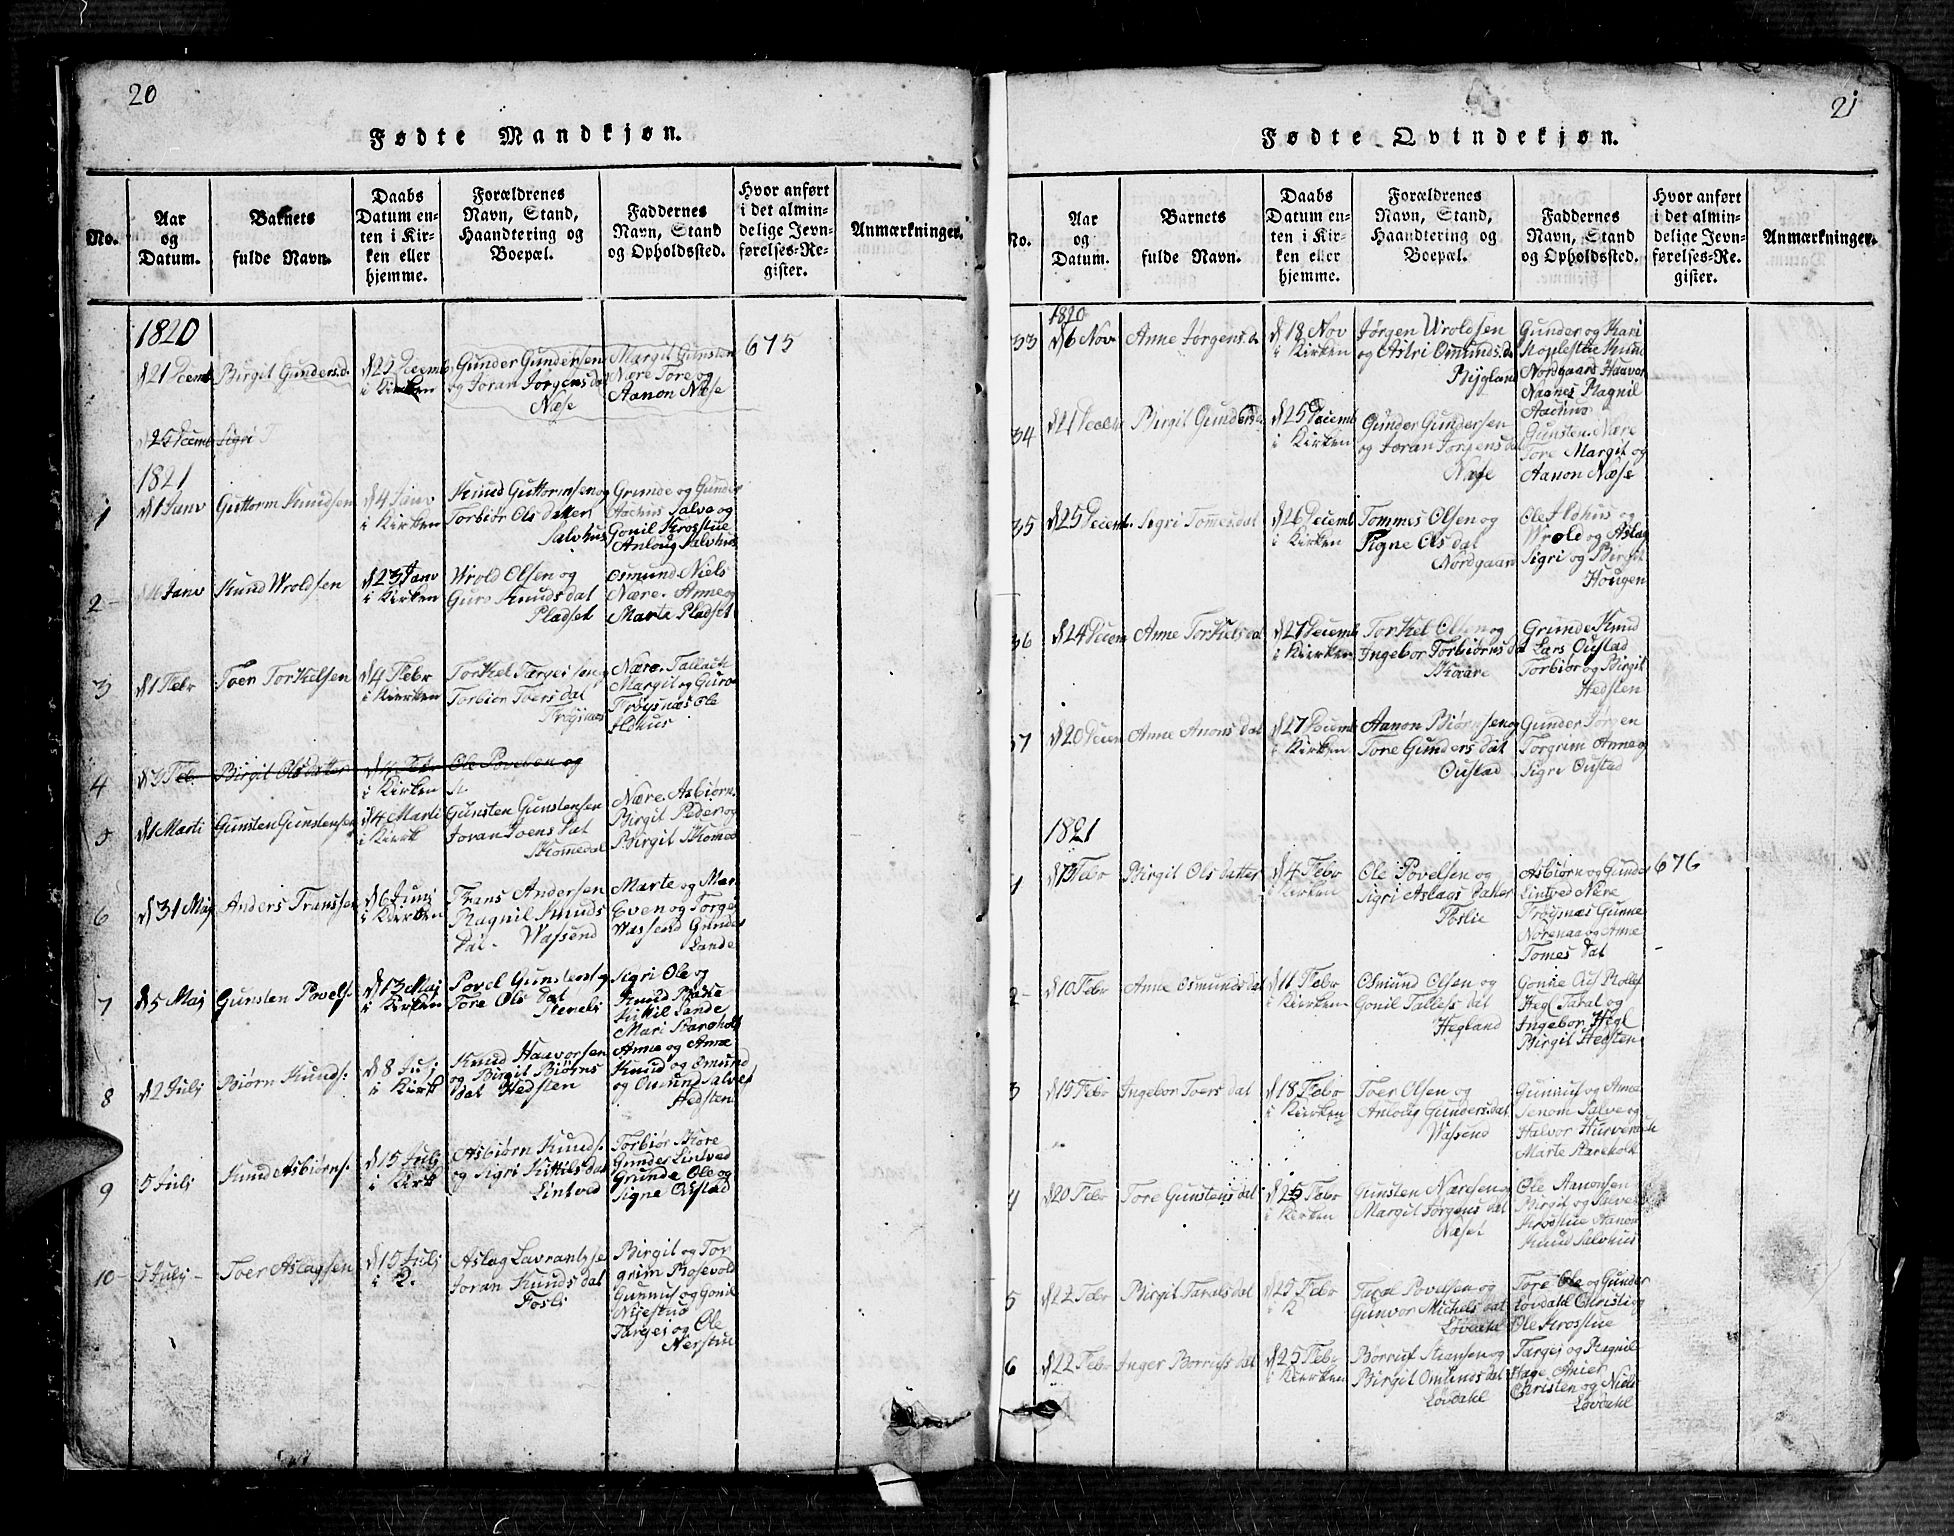 20
Fødte Mandkjøn.
No.
Aar
og
Datum.
Barnets
fulde Navn.
Daabs
Datum en-
ten i Kir-
ken eller
hjemme.
Forældrenes
Navn, Stand,
Haandtering og
Boepæl.
Faddernes
Navn, Stand
og Opholdssted.
Hvor anført
i det almin-
delige Jevn-
førelses-Re-
gister.
Anmærkninger.
1820
d 21 Decemb
Birgit Gundersd.
d 25 Decemb
i Kirken
Gunder Gundersen
og Joran Jørgens dat
Næse
Margit Gunsten
Nære Tore og
Aanon Næse
675
d 25 Decemb
Sigri T
1821
1
d 1 Janv
Guttorm Knudsen
d 4 Janv
i Kirken
Knud Guttormsen og
Torbiør Ols datter
Salvhus
Grunde og Gunder
Aachus Salve og
Gonil Krosstue
Anloug Salvhus
2
Janv
Knud Wroldsen
d 23 Janv
i Kirken
Wrold Olsen og
Guro Knuds dat
Pladset
Osmund Niels
Nære. Anne og
Marte Pladset
3
d 1 Febr
Toer Torkelsen
d 4 Febr
i Kierken
Torkel Targeisen
Torbiør Toers dat
Frøisnæs
Nære. Tallach
Margit og Guro
Frøysnæs Ole
Aldhus
4
d 3 Feb
Birgit Olsdatter
d 4 Febr
i Kirken
Ole Povelsen og
5
d 1 Marti
Gunsten Gunstensen
d 4 Marti
i Kirk
Gunsten Gunstensen
Joran Toens dat
Skomedal
Nære. Asbiørn
Birgit Peder og
Birgit Skomed
6
d 31 Maj
Anders Franssen
d 6 Junj
i Kirken
Frans Andersen
Ragnil Knuds
dat. Wassend
Marte og Mar.
Even og Torge
Wassend Gunder
Lande
7
d 5 Maj
Gunsten Povels:
d 13 Maj
i Kirken
Povel Gunstens og
Tore Ols dat
Heneli
Sigri Ole og
Knud
Kittil Sande
Mari Stareholt
8
d 2 Julj
Biørn Knuds:
d 8 Julj
i Kirk
Knud Haavorsen
og Birgit Biørns
dat Hedsten
Anne og Anne
Knud og Osmund
og Osmund Salves
Hedsten
9
5 Julj
Knud Asbiørns:
d 15 Julj
i Kirk
Asbiørn Knuds:
og Sigri Kittils dat
Lintved
Torbiør Kore
Gunder Lintved
Grunde Ole og
Signe Oustad
10
5 July
Toer Aslagsen
d 15 Julj
i K.
Aslag Lavrantsse
Joran Knuds dat
Fosli
Birgit og Tor
grim Rosevold
Gunnuf og Gonil
Nystuo
Targej og Ole
Nerstue
21
Fødte Qvindekjøn.
No.
Aar
og
Datum.
Barnets
fulde Navn.
Daabs
Datum en-
ten i Kir-
ken eller
hjemme.
Forældrenes
Navn, Stand,
Haandtering og
Boepæl.
Faddernes
Navn, Stand
og Opholdssted.
Hvor anført
i det almin-
delige Jevn-
førelses-Re-
gister.
Anmærkninger.
1820
33
d 6 Nov
Anne Jørgens.d
d 18 Nov
i Kirken
Jørgen Wroldsen
og Astri Omunds.d
Bygland
Gunder og Kari
Noplestue Knud
Nordgaard Haavor
Næsnes Ragnil
Aachus
34
d 21 Decbr
Birgit Gundersd
d 25 Decemb
i Kirken
Gunder Gundersen
og Joran Jorgens dat
Næse
Gunsten. Nære
Tore Margit og
Aanon Næse
35
d 25 Decemb.
Sigri Tommesdat
d 26 Decemb
i Kirken
Tommes Olsen og
Signe Ols dat
Nordgaard
Ole Aldhus og
Wrold og Aslag
Sigri og Birgit
Hougen
36
d 24 Decem
Anne Torkels dat
d 27 Decemb
i Kierken
Torkel Olsen og
Ingebor Torbiørns dat
Skaare
Grunde Knud
Lars Oustad
Torbiør og Birgit
Hedsten
37
d 20 Decem
Anne Anons dat
d 27 Decemb
i Kirken
Aanon Biørnsen og
Tore Gunders dat
Oustad
Gunder Jørgen
Torgrim Anne og
Sigri Oustad
1821
1
d 13 Febr
Birgit Ols datter
d 4 Febr
i Kirken
Ole Povelsen og
Sigri Aslags datter
Foslie
Asbiørn og Gunder
Lintved Nere
Frøysnæs Gunne
Norenaa og Anne
Tomes dat
676
2
d 10 Febr
Anne Osmunds dat
d 11 Febr
i Kierken
Osmund Olsen og
Gonil Talless dat
Hegland
Gonne Ous Rolef
Hegl Taral og
Ingebor Hegl
Birgit Hedsten
3
d 15 Febr
Ingebor Toers dat
d 18 Febr
i Kierken
Toer Olsen og
Anloug Gunders.dat
Wassend
Gunnuf og Anne
Jenom Salve og
Halvor Hurverak
Marte Stareholt
4
d 20 Febr
Tore Gunstens dat
d 25 Febr
i Kirken
Gunsten Næresen og
Margit Jørgens dat
Næset
Ole Aanonsen
Birgit og Salve
Krostue Aanon
Knud Salvhus
5
d 22 Febr
Birgit Tarals dat
d 25 Febr
i K
Taral Povelsen og
Gunvor Michels dat
Lovdahl
Tore Ole og Gunder
Lovdahl Christi og
Ole Krosstue
6
d 22 Febr
Inger Børrufs dat
d 25 Febr
i Kierken
Børruf Stiansen og
Birgit Omunds dat
Lovdahl
Targej og Ragnil
Hage Anier
Christen og Niels
Lovdahl